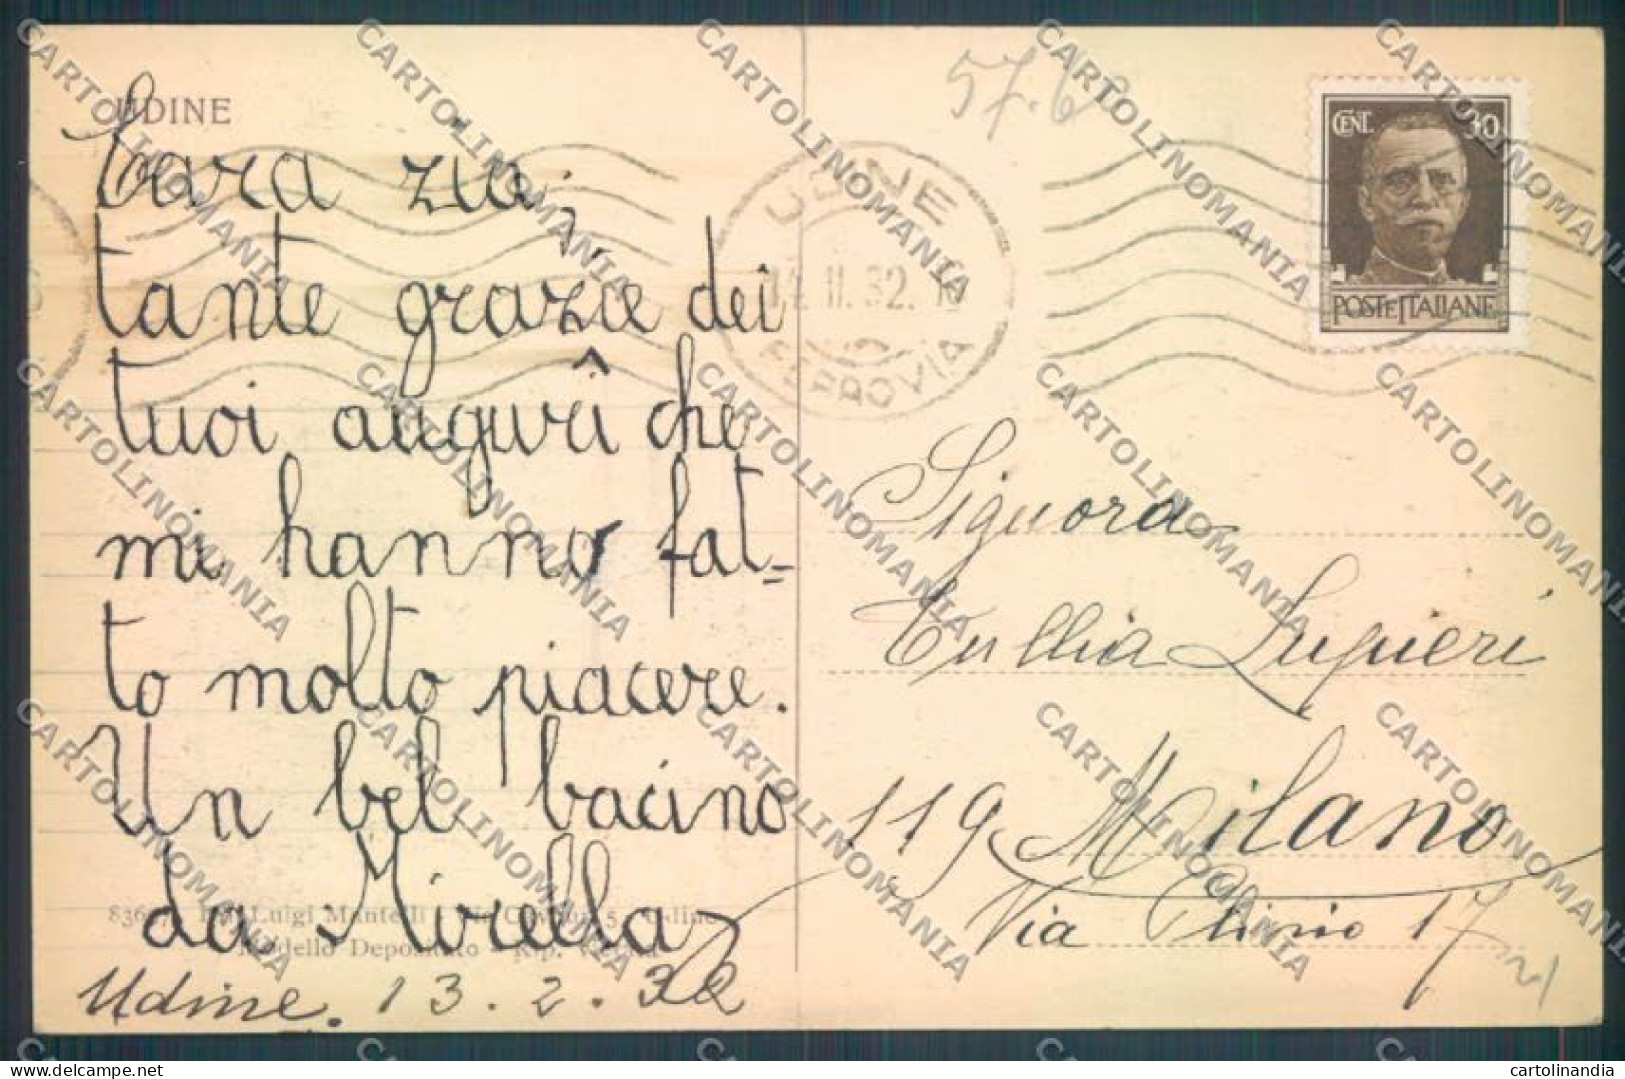 UDINE
Cara zia,
tante grazie dei
tuoi auguri che
mi hanno fat=
to molto piacere.
Un bel bacino
da Mirella
Udine. 13.2.32
Luigi Mantelli
Modello Depositato - Rip. Vietata
57.6
UDINE
II.32.
FERROVIA
CENT. 30
POSTE ITALIANE
Signora
Tullia Lupieri
119 Milano
Via Plinio 17
CARTOLINOMANIA
cartolinandia